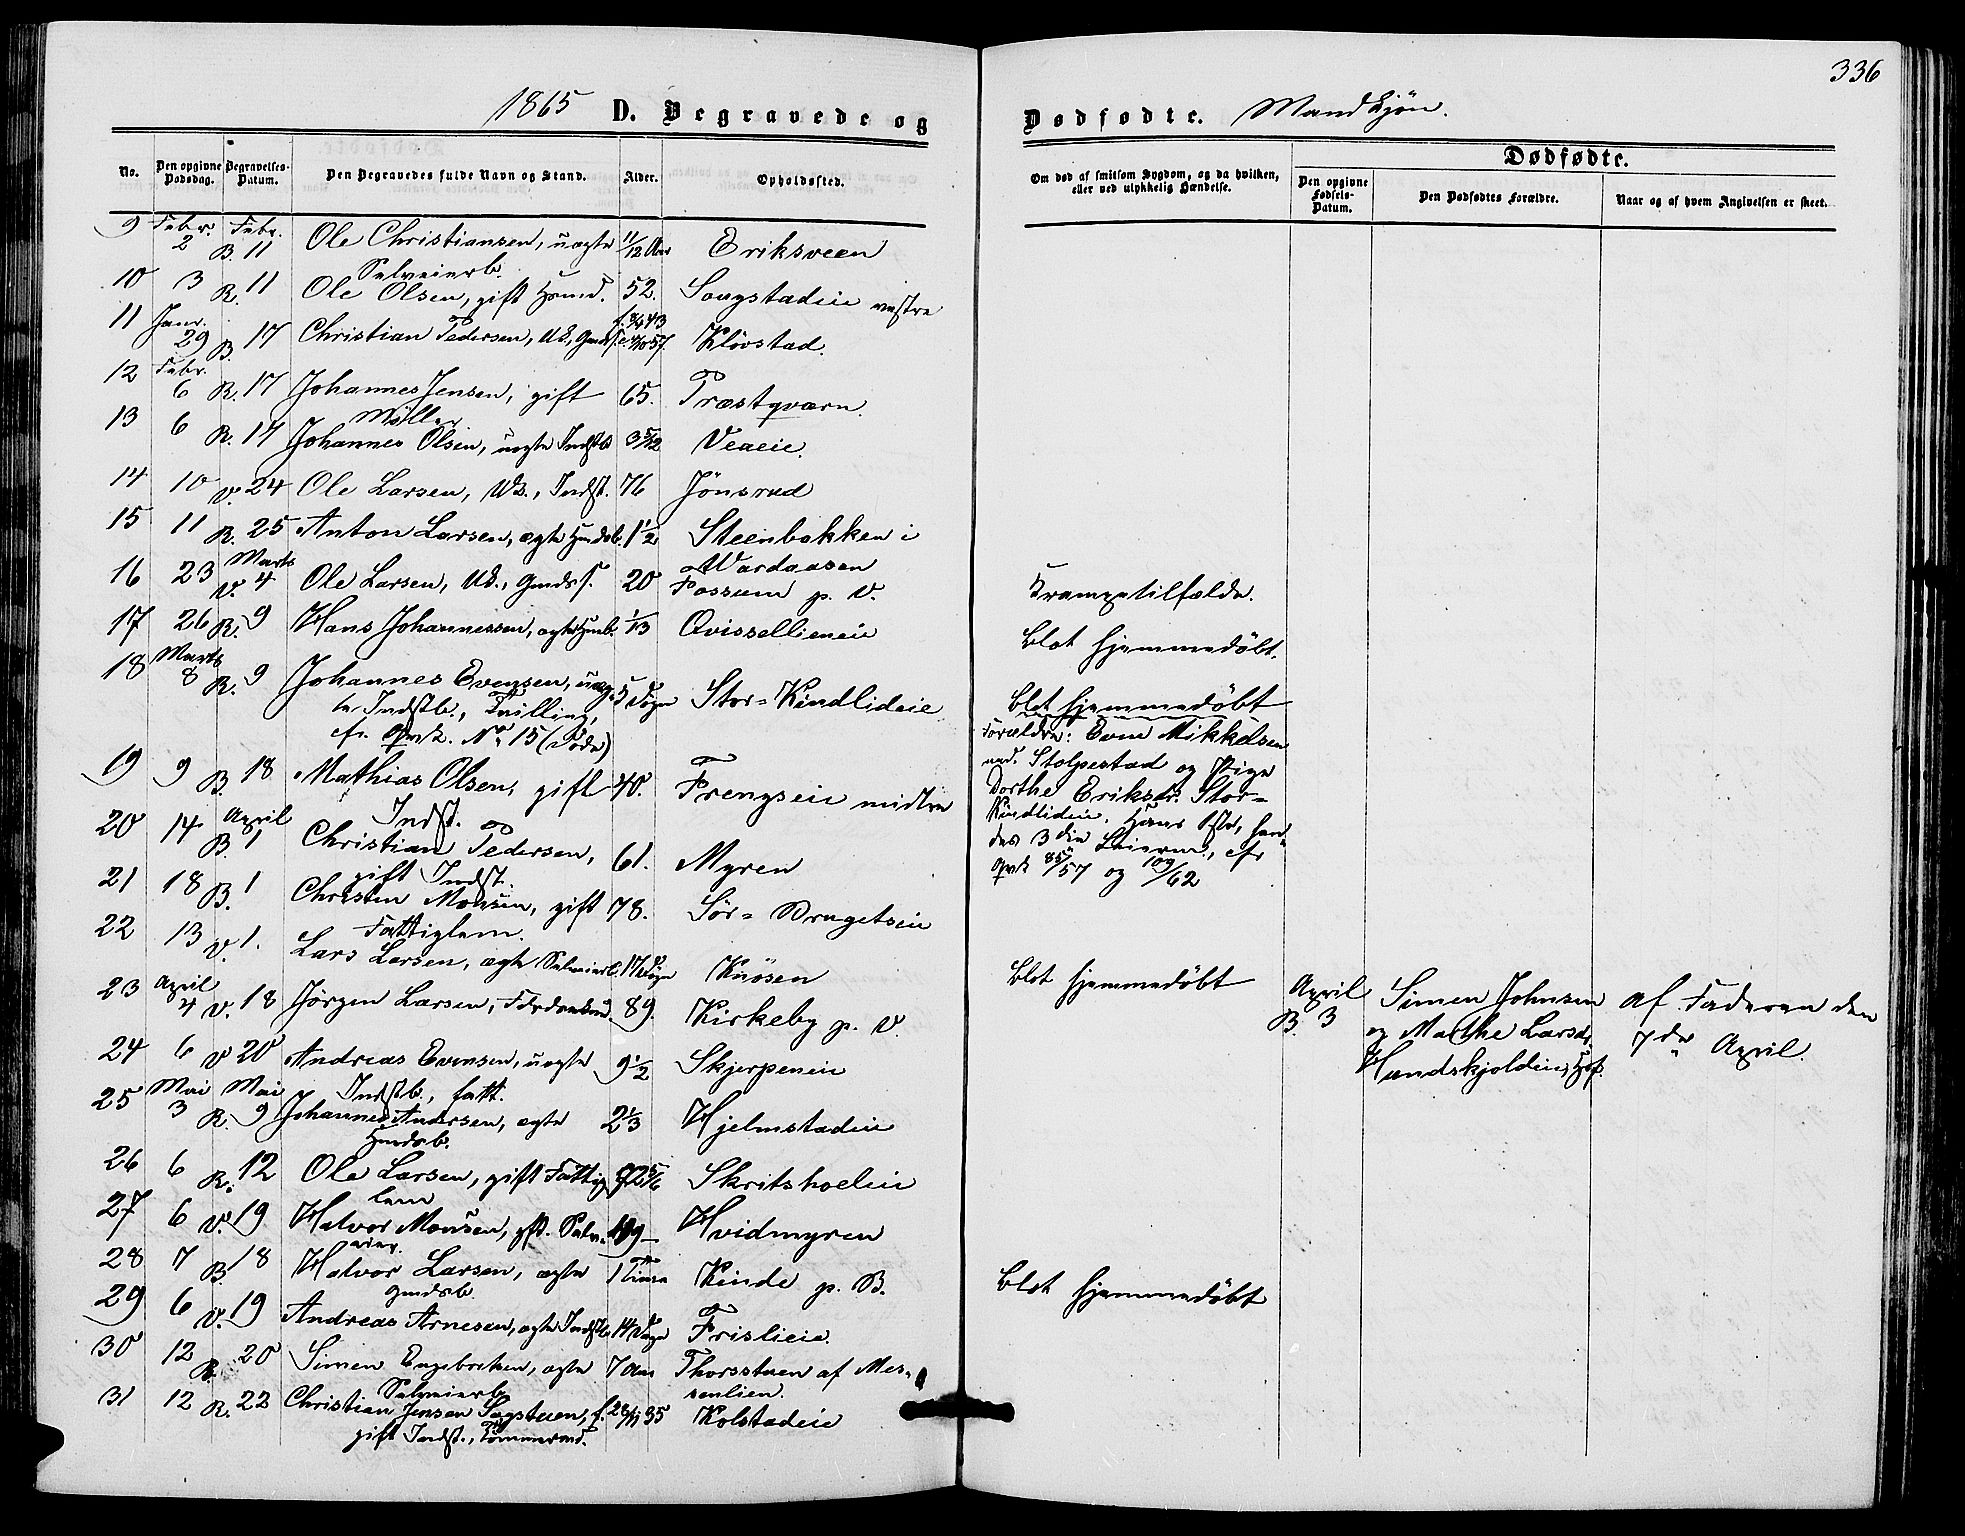 336
1865 D. Begravede og
Dødfødte. Mandkjøn.
No.
Den opgivne Dødsdag.
Begravelses-Datum.
Den Begravedes fulde Navn og Stand.
Alder.
Opholdssted.
Om død af smitsom Sygdom, og da hvilken, eller ved ulykkelig Hændelse.
Dødfødte.
Den opgivne Fødsels-Datum.
Den Dødfødtes Forældre.
Naar og af hvem Angivelsen er skeet.
9 Febr. 2 B. Febr. 11 Ole Christiansen, uægte Selveierb. 11/12 Aar Eriksveen
10 3 R. 11 Ole Olsen, gift Hmd. 52. Sougstadeie vestre
11 Janr. 29 B. 17 Christian Pedersen, Uk., Klövstad.
12 Febr. 6 R. 17 Johannes Jensen, gift Møller 65. Præstqværn.
13 6 R. 17 Johannes Olsen, uægte Indstb 3 5/12 Veaeie.
14 10 V. 24 Ole Larsen, Uk., Indst. 76 Jönsrud
15 11 R. 25 Anton Larsen, ægte Hmdsb. 1 1/2 Steenbakken i Wardaasen
16 23 V. Marts 4 Ole Larsen, Uk., Gmds S. 20 Fossum p. V. Krampetilfælde.
17 26 R. 9 Hans Johannessen, ægte Hmb. 1/13 Qvissellieneie blot hjemmedøbt.
18 Marts 8 R. 9 Johannes Evensen, uæg-
te Indstb., Tvilling,
cfr. Qvk. No 15 (Föde) 5 Døgn Stor-Kindlideie blot hjemmedøbt
Forældre: Even Mikkelsen
ned. Stolpestad og Pige
Dorthe Eriksdr. Stor-
Kindlideie. Hans 1ste, hen-
des 3die Leierm., cfr
Qvk 85/57 og 109/62
19 9 B. 18 Mathias Olsen, gift Indst. 40. Frengseie midtre
20 14 B. April 1 Christian Pedersen, gift Indst. 61. Myren
21 18 B. 1 Christen Monsen, gift Fattiglem. 78. Sör-Brugetseie
22 13 V. 1. Lars Larsen, ægte Selveierb. 17 Døgn Knösen blot hjemmedøbt
23 April 4 V. 18 Jörgen Larsen, 89. Kirkeby p. V.
April B. 3 Simen Johnsen
og Marthe Larsdr.
Hundskjoldeie, af Faderen den
7de April.
24 6 V 20 Andreas Evensen, uægte Indstb., fatt. 9 1/2 Skjerpeneie
25 Mai 3 R. Mai 9 Johannes Andersen, ægte Hmdsb. 2 1/3 Hjelmstadeie
26 6 R. 12 Ole Larsen, gift Fattig-
lem 72 5/6 Skritshoeleie
27 6 V. 19 Halvor Monsen, gft. Selv-
eier. 49 Hvidmyren
28 7 B. 18 Halvor Larsen, ægte Gmdsb. 1 Time Kinde p. B. blot hjemmedøbt
29 6 V. 19 Andreas Arnesen, ægte Indstb. 14 Døgn Frislieie.
30 12 R. 20 Simen Engebretsen, ægte Selveierb. 7 Aar Thorsstuen af Mes-
senlien.
31 12 R. 22 Christian Jensen Sagstuen,
gift Indst., Tömmermd. f. 28/11 35 Kolstadeie